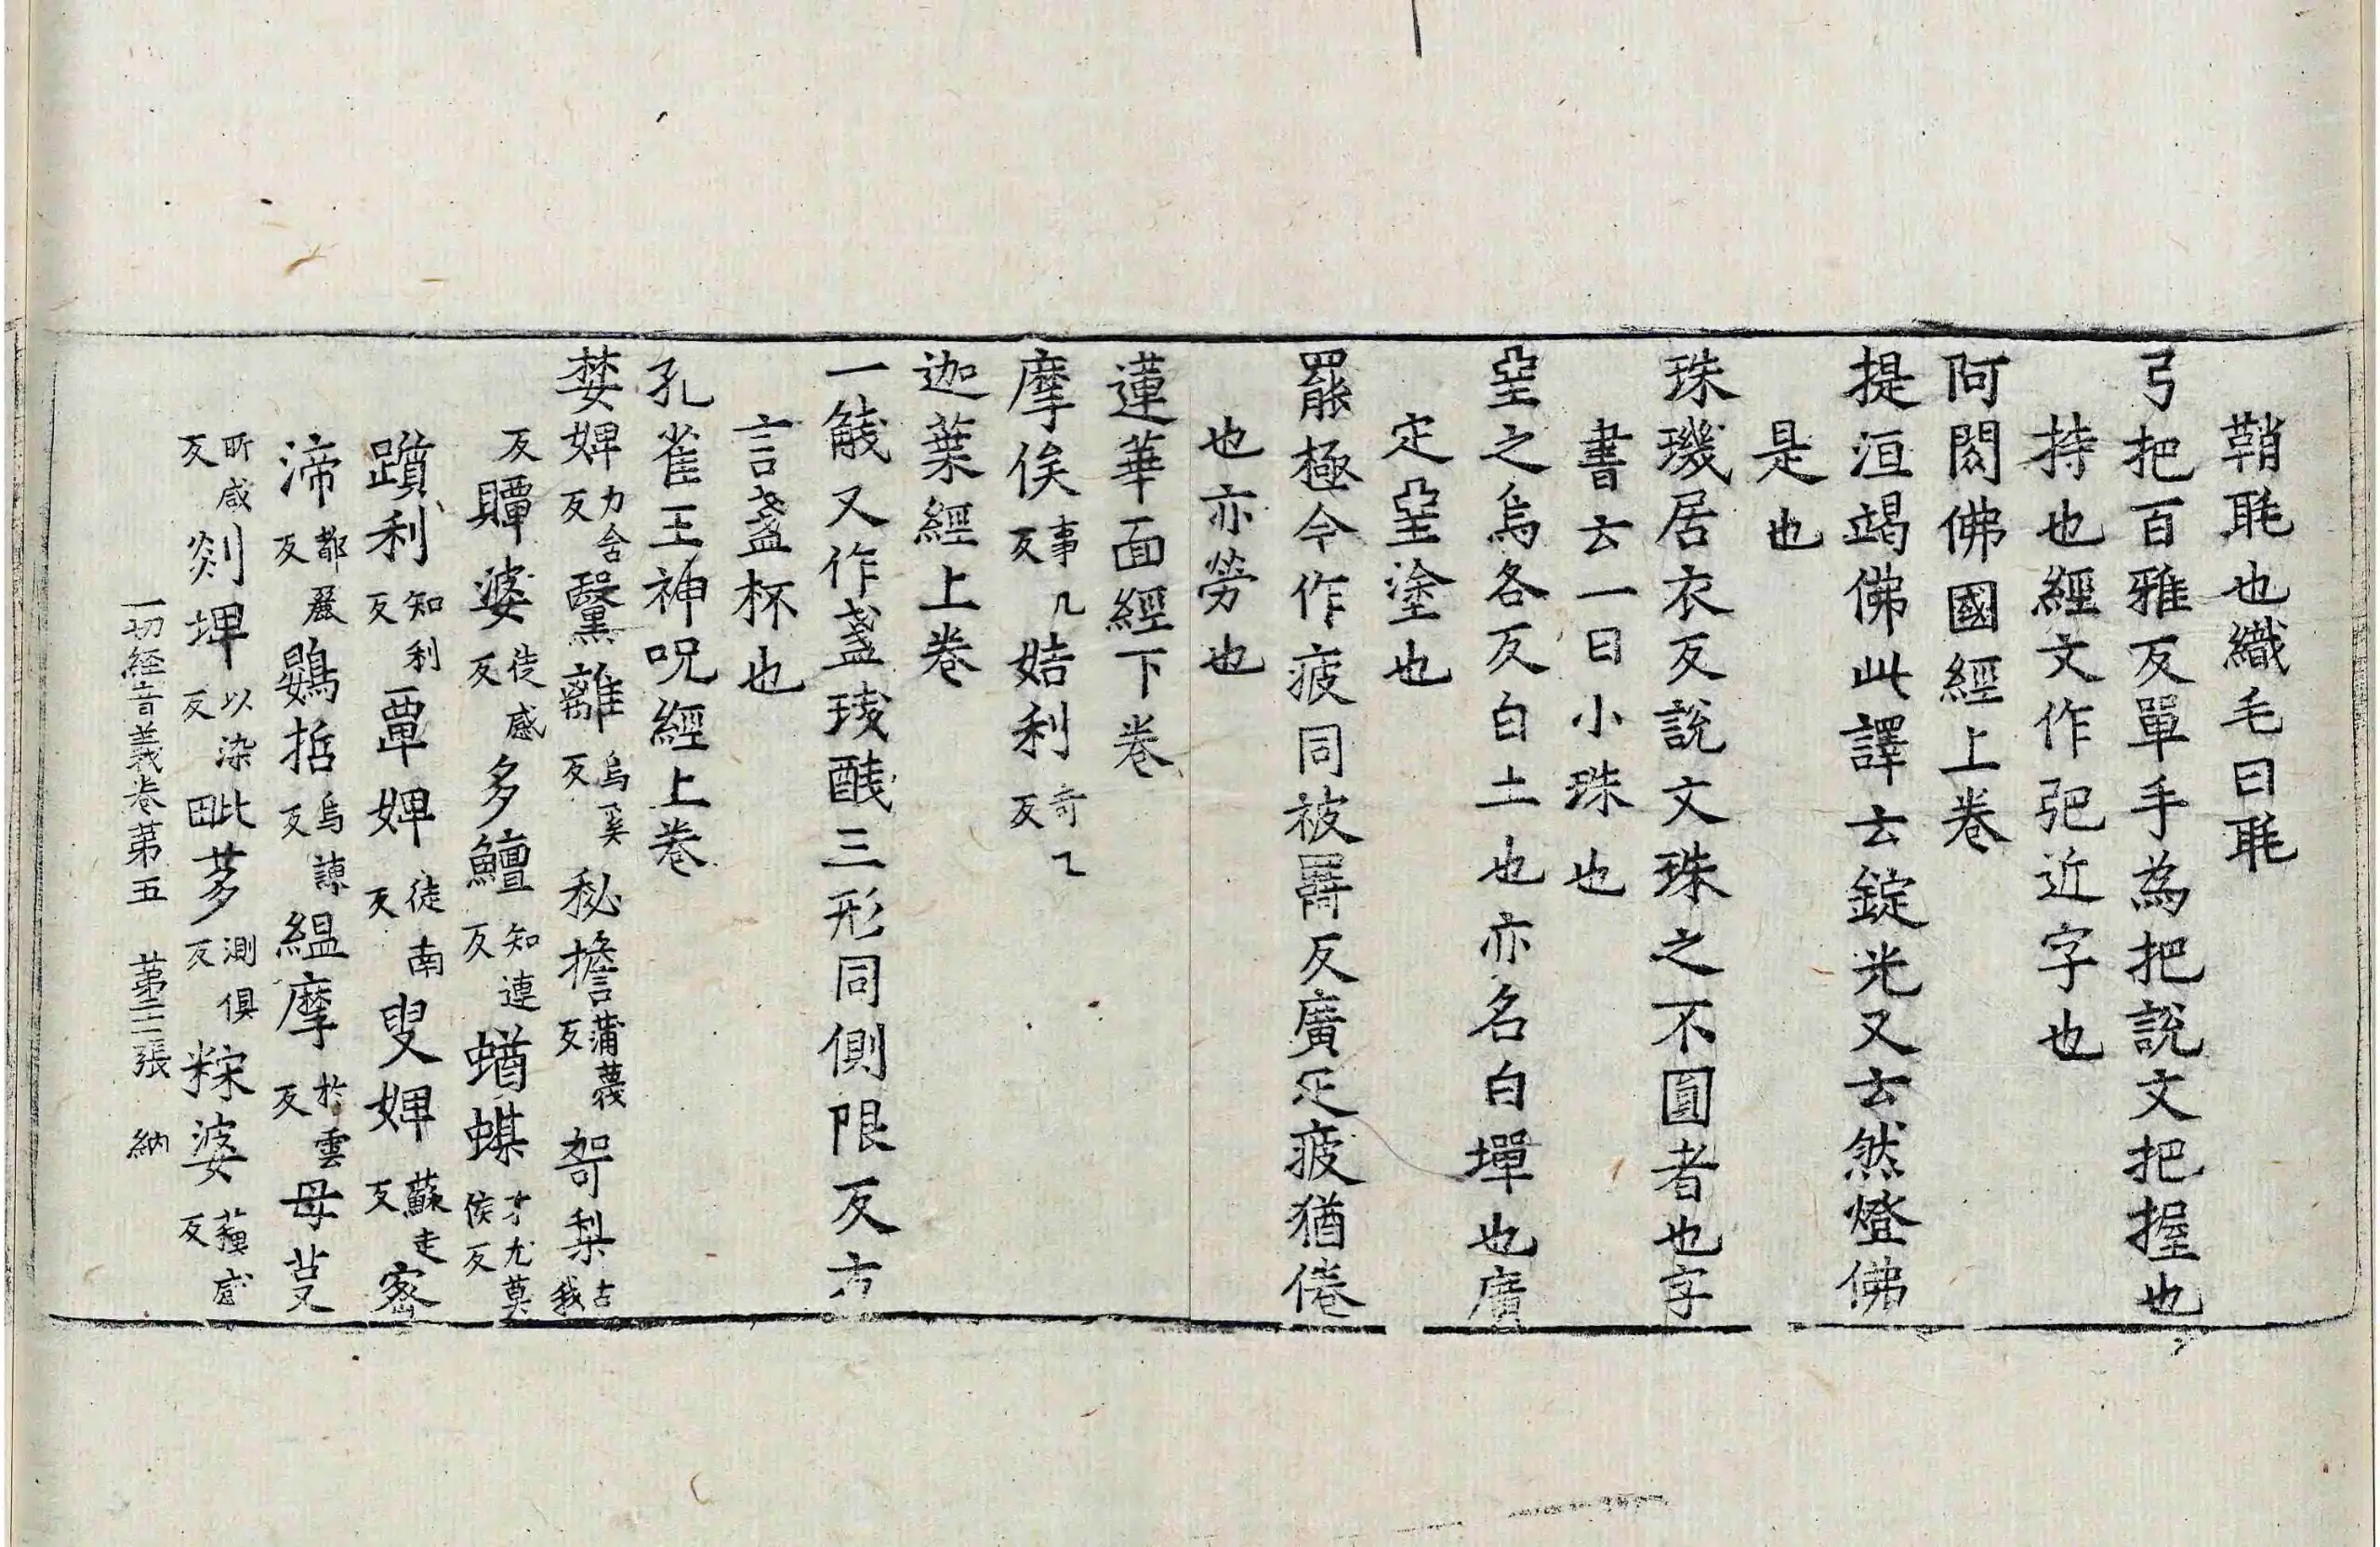 鞘毦也織毛曰毦
弓把百雅反單手為把說文把握也
持也經文作弝近字也
阿閦佛國經上卷
提洹竭佛此譯云錠光又云然燈佛
是也
珠璣居衣反說文珠之不圓者也字
書云一曰小珠也
堊之烏各反白土也亦名白墡也廣
定堊塗也
羆極今作疲同被羈反廣疋疲猶倦
也亦勞也
蓮華面經下卷
摩俟事几反姞利奇乙反
迦葉經上卷
一觙又作盞琖醆三形同側限反方
言盞杯也
孔雀王神呪經上卷
婪婢力含反黳離烏奚反秘擔蒲蔑反哿梨古我
反贉婆徒感反多鱣知連反蝤蝶才尤莫侯反
躓利知利反覃婢徒南反叟婢蘇走反窓
渧都麗反鷃哲烏諫反緼摩於雲反母荳
昕感反剡埤以染反毗茤測俱反粽婆蘓感反
一切經音義卷第五 第二二張 納